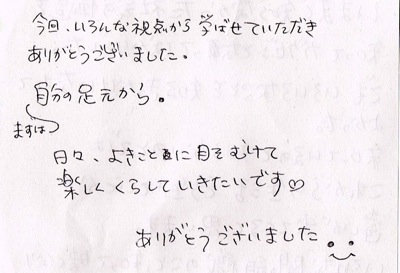 今回、いろんな視点から学ばせていただき
ありがとうございました。
自分の足元から。
まずは
日々、よきことに目をむけて
楽しくくらしていきたいです♡
ありがとうございました